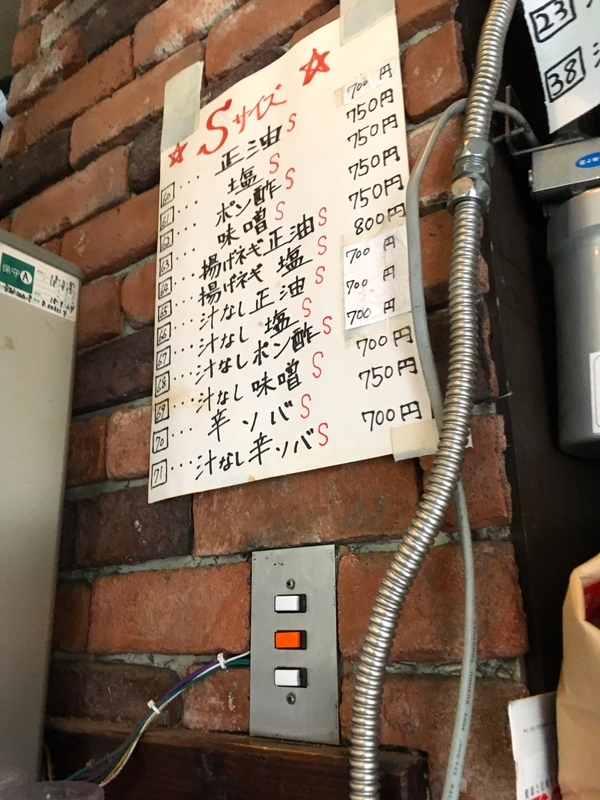 Sサイズ
60 ... 正油 S 700円
61 ... 塩 S 750円
62 ... ポン酢 S 750円
63 ... 味噌 S 750円
64 ... 揚げネギ正油 S 750円
65 ... 揚げネギ塩 S 800円
66 ... 汁なし正油 S 700円
67 ... 汁なし塩 S 700円
68 ... 汁なしポン酢 S 700円
69 ... 汁なし味噌 S 700円
70 ... 辛ソバ S 750円
71 ... 汁なし辛ソバ S 700円
23
38
保守A